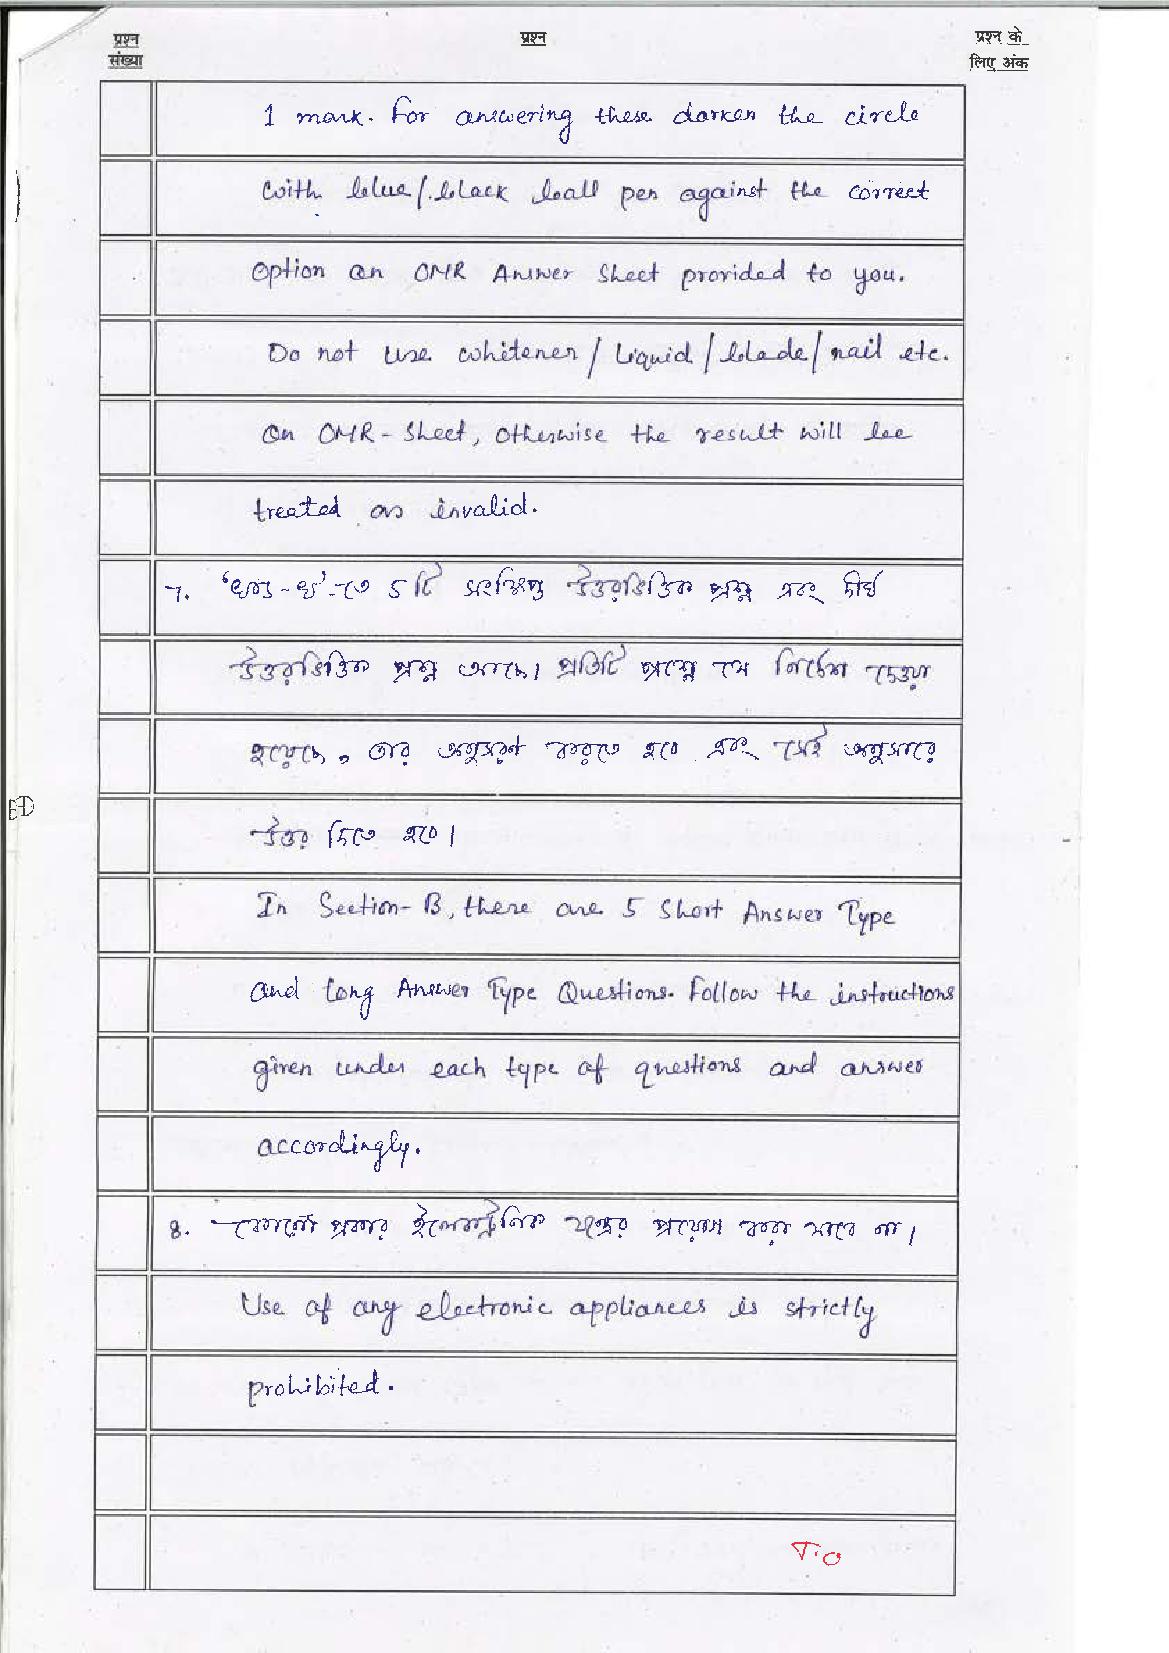 प्रश्न संख्या
प्रश्न
प्रश्न के लिए अंक
1 mark. For answering these darken the circle
with blue/black ball pen against the correct
option on OMR Answer Sheet provided to you.
Do not use whitener/Liquid/blade/nail etc.
on OMR-Sheet, otherwise the result will be
treated as invalid.
7. 'খণ্ড-খ'-তে 5টি সংক্ষিপ্ত উত্তরভিত্তিক প্রশ্ন এবং দীর্ঘ
উত্তরভিত্তিক প্রশ্ন আছে। প্রতিটি প্রশ্নে যে নির্দেশ দেওয়া
হয়েছে, তার অনুসরণ করতে হবে এবং সেই অনুসারে
উত্তর দিতে হবে।
In Section-B, there are 5 Short Answer Type
and Long Answer Type Questions. Follow the instructions
given under each type of questions and answer
accordingly.
8. কোনো প্রকার ইলেকট্রনিক যন্ত্রের প্রয়োগ করা যাবে না।
Use of any electronic appliances is strictly
prohibited.
T.O